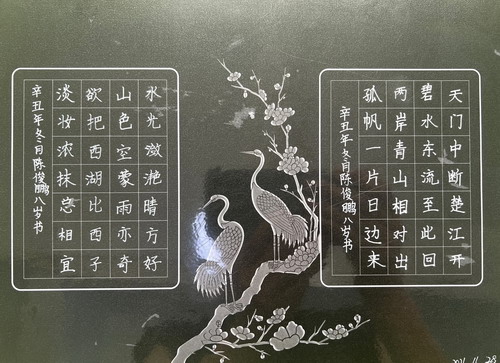 天门中断楚江开
碧水东流至此回
两岸青山相对出
孤帆一片日边来
辛丑年冬月陈俊鹏八岁书
水光潋滟晴方好
山色空蒙雨亦奇
欲把西湖比西子
淡妆浓抹总相宜
辛丑年冬月陈俊鹏八岁书